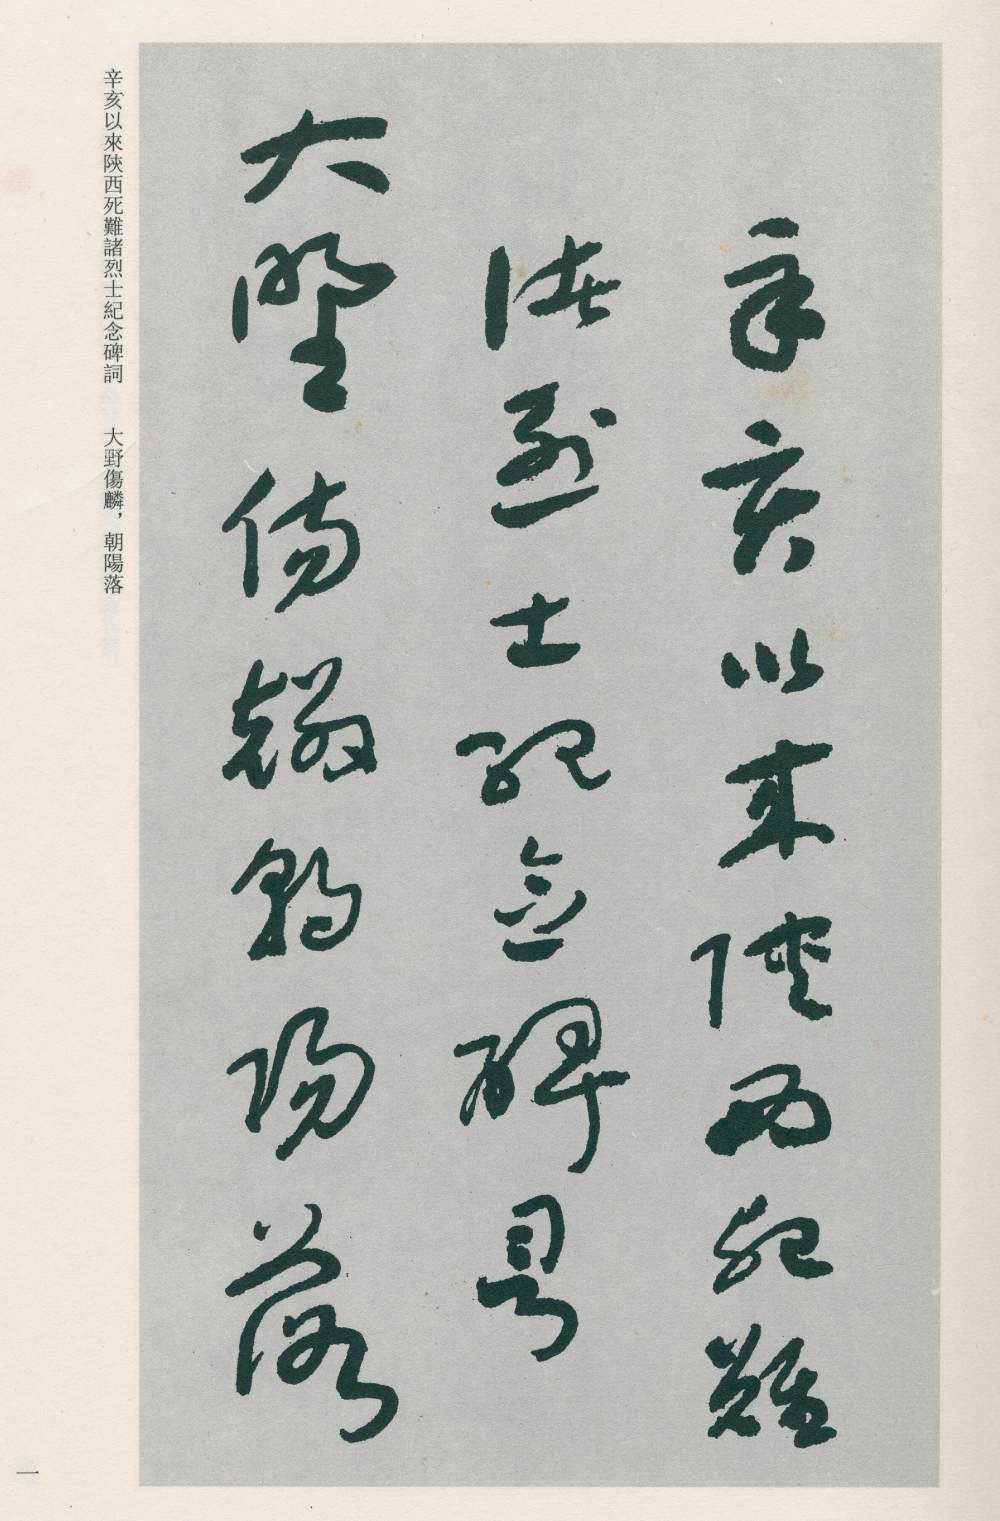 辛亥以來陝西死難
諸烈士紀念碑詞
大野傷麟朝陽落
辛亥以來陝西死難諸烈士紀念碑詞　大野傷麟，朝陽落
一